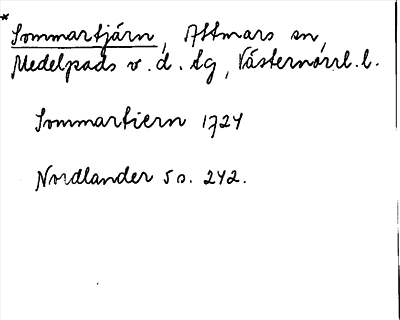 * Sommartjärn, Attmars sn,
Medelpads v. d. tg, Västernorrl. l.
Sommartiern 1724
Nordlander 5 s. 242.